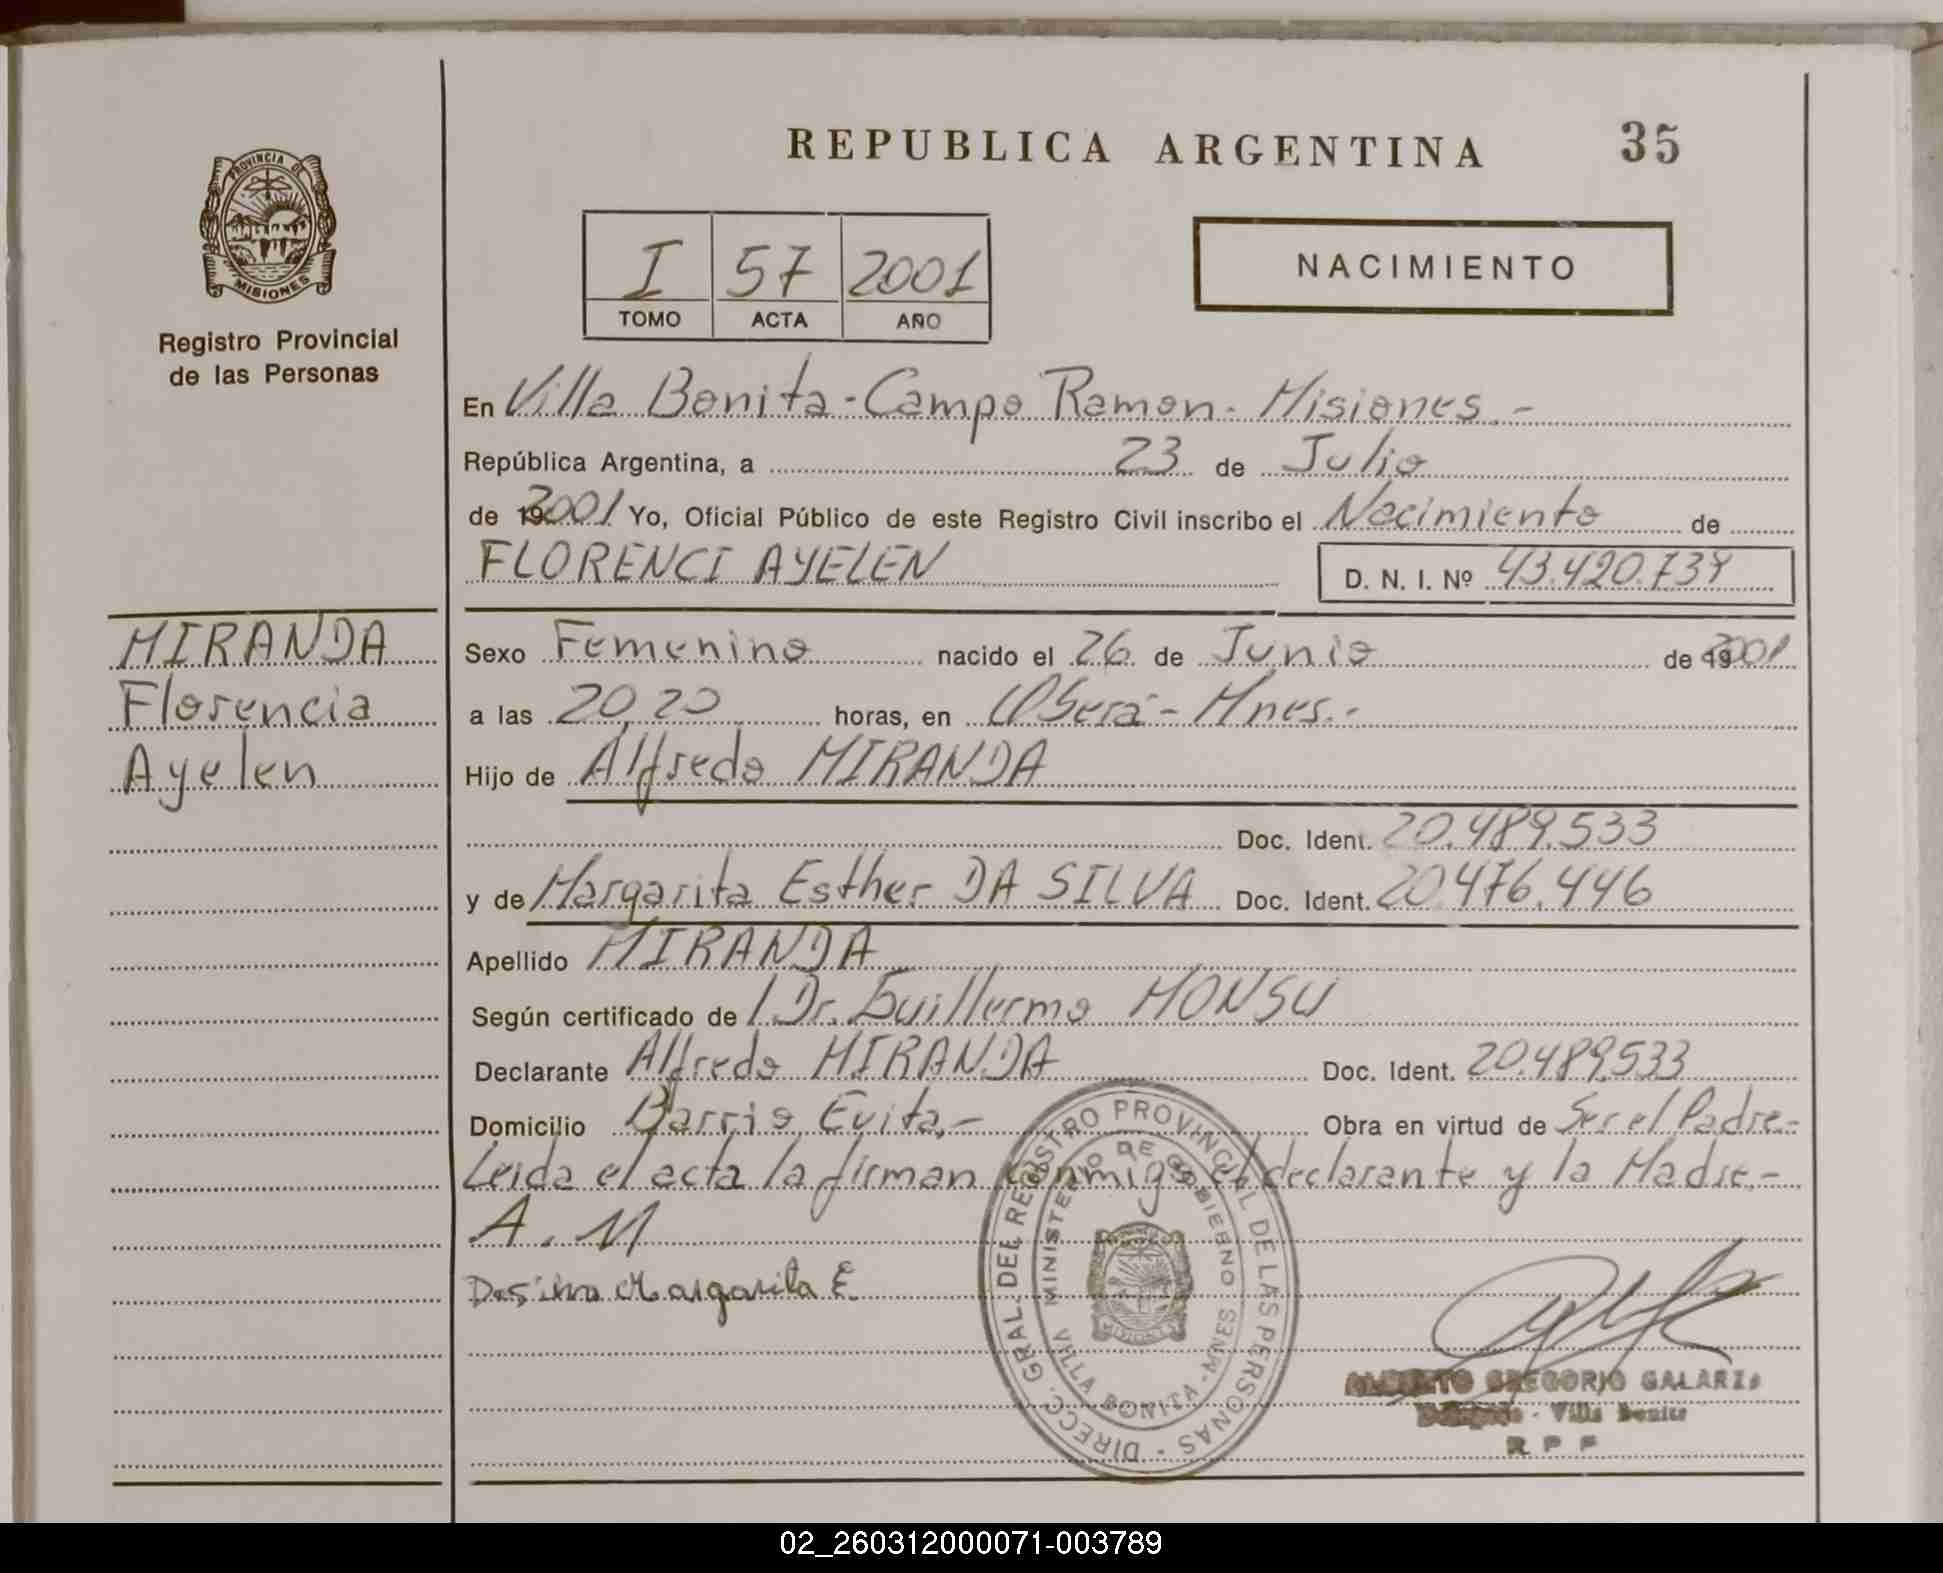 REPUBLICA ARGENTINA
35
PROVINCIA DE
MISIONES
Registro Provincial
de las Personas
I 57 2001
TOMO ACTA AÑO
NACIMIENTO
En Villa Bonita - Campo Ramon - Misiones.-
República Argentina, a 23 de Julio
de 2001 Yo, Oficial Público de este Registro Civil inscribo el Nacimiento de
FLORENCI AYELEN
D. N. I. Nº 43.420.739
MIRANDA
Florencia
Ayelen
Sexo Femenino nacido el 26 de Junio de 2001
a las 20,20 horas, en Oberá - Mnes.-
Hijo de Alfredo MIRANDA
Doc. Ident. 20.489.533
y de Margarita Esther DA SILVA Doc. Ident. 20.476.446
Apellido MIRANDA
Según certificado de Dr. Guillermo MONSU
Declarante Alfredo MIRANDA Doc. Ident. 20.489.533
Domicilio Barrio Evita.- Obra en virtud de Ser el Padre-
Leida el acta la firman conmigo el declarante y la Madre.-
A. M
Dasilva Margarita E.
DIRECC. GRAL. DEL REGISTRO PROVINCIAL DE LAS PERSONAS
MINISTERIO DE GOBIERNO
VILLA BONITA - MNES
MISIONES
ALBERTO GREGORIO GALARZA
Delegado - Villa Bonita
R P F
02_260312000071-003789